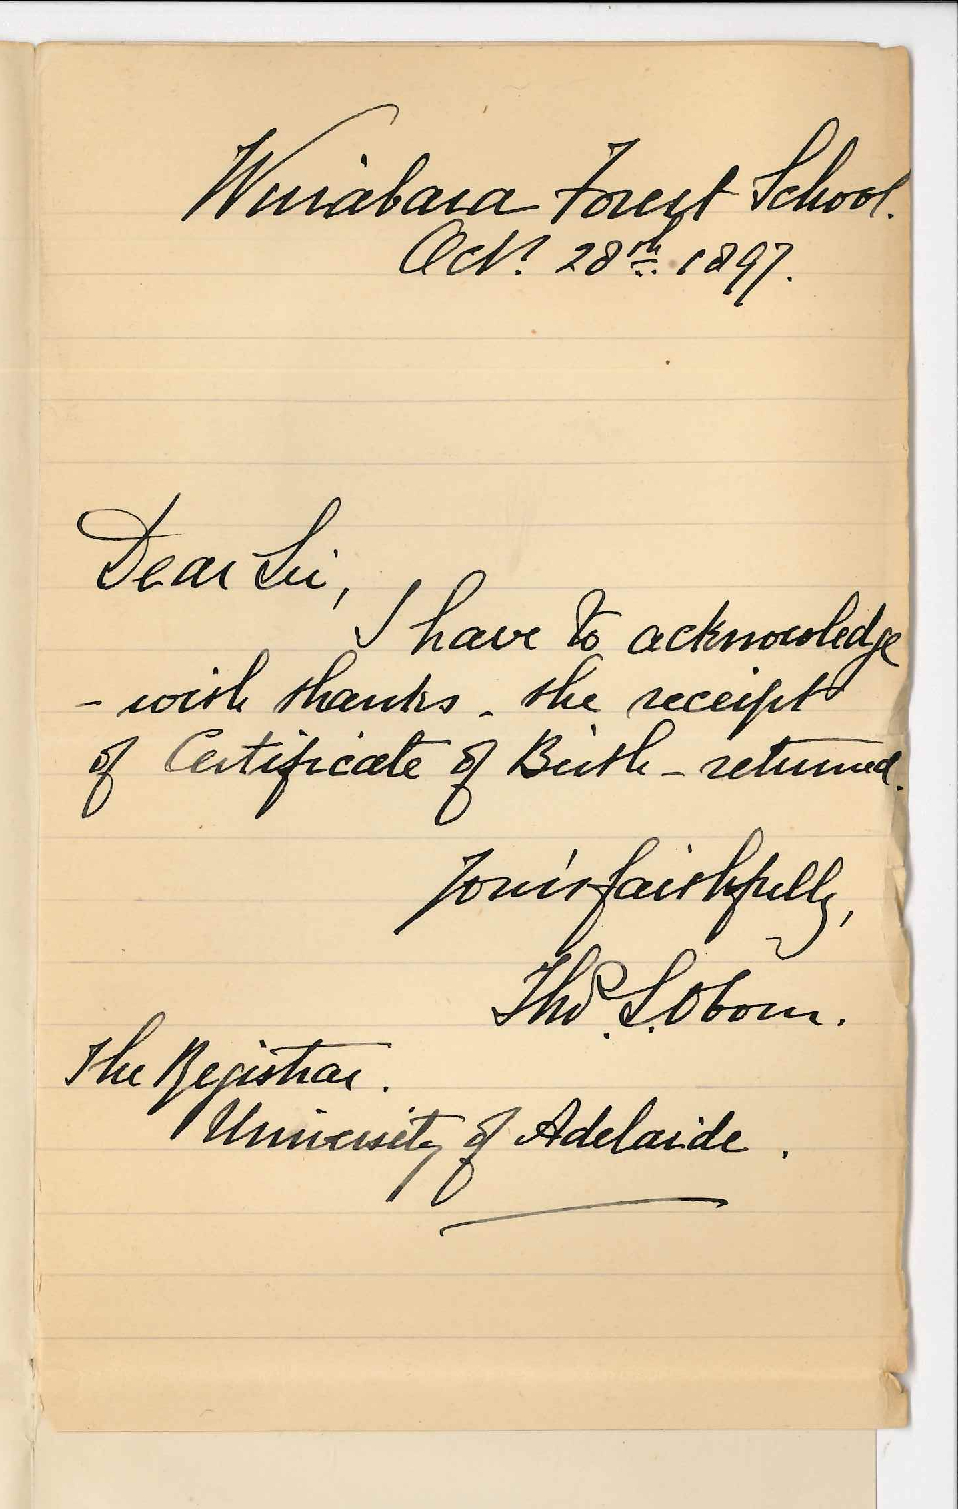 Wirrabara Forest School.
Oct. 28th 1897.
Dear Sir,
I have to acknowledge
- with thanks - the receipt
of Certificate of Birth - returned.
Yours faithfully,
Thos. S. Oborn.
The Registrar.
University of Adelaide.